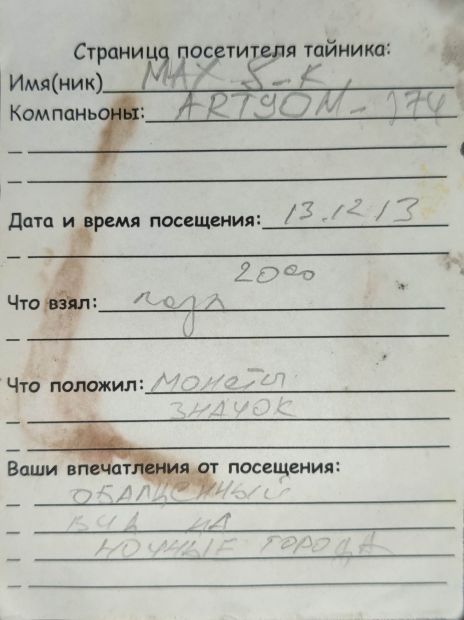 Страница посетителя тайника:
Имя(ник) MAX_S_K
Компаньоны: ARTYOM_174
Дата и время посещения: 13.12.13
20⁰⁰
Что взял: пазл
Что положил: монеты
значок
Ваши впечатления от посещения:
ОБАЛДЕННЫЙ
ВИД НА
НОЧНЫЕ ГОРОДА